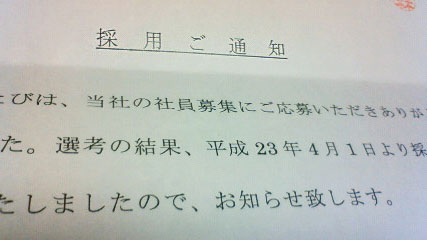 採用ご通知
たびは、当社の社員募集にご応募いただきありが
た。選考の結果、平成23年4月1日より採
たしましたので、お知らせ致します。